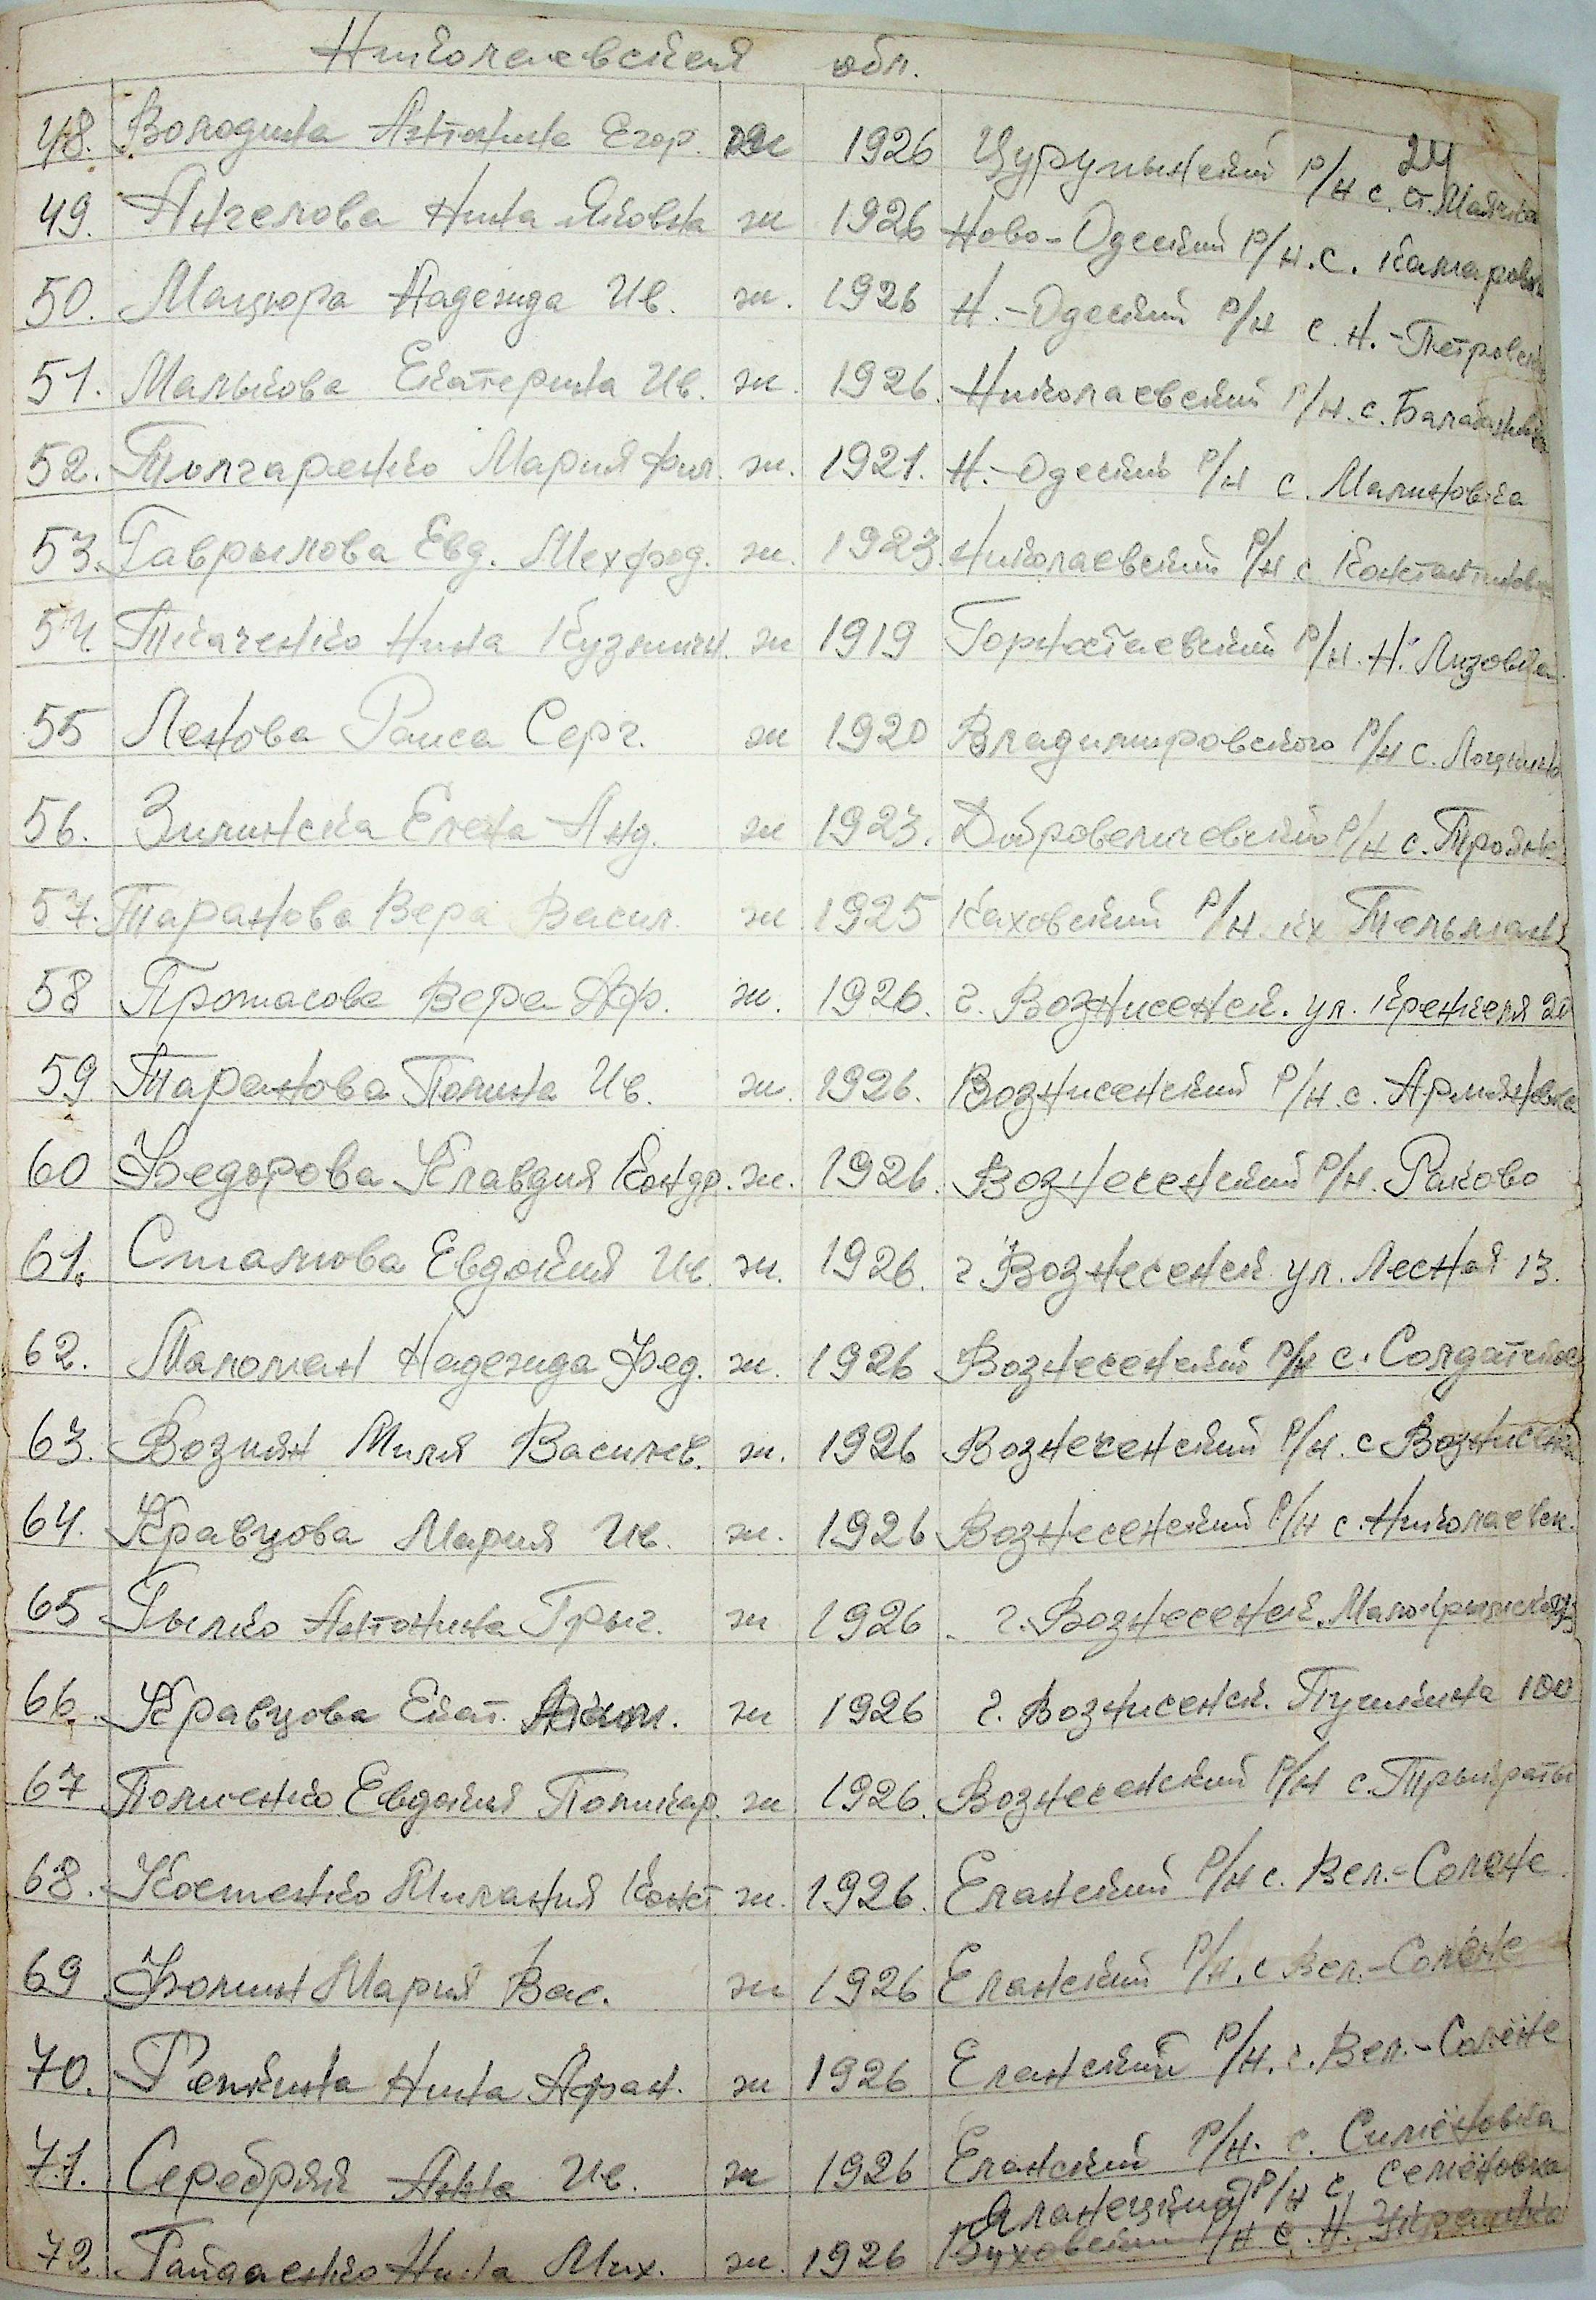 Николаевская обл.
24
48. Володина Антонина Егор. ж 1926 Цурупынский р/н с. ст. Маячка
49. Ангелова Нина Яковна ж 1926 Ново-Одеский р/н. с. Камаровка
50. Мацюра Надежда Ив. ж. 1926 Н.-Одеский р/н с. Н.-Петровск
51. Малькова Екатерина Ив. ж. 1926. Николаевский р/н. с. Балабановка
52. Толчаренко Мария Фил. ж. 1921. Н.-Одеский р/н с. Малиновка
53. Гаврылова Евд. Мехфод. ж. 1923. Николаевский р/н с Константиновк
54. Ткаченко Нина Кузминн. ж 1919 Горностаевский р/н. Н.
55 Ленова Раиса Серг. ж 1920 Владимировского р/н с.
56. Зилинска Елена Анд. ж 1923. Добровеличевский р/н с.
57. Таранова Вера Васил ж 1925 Каховский р/н. кх Тельмана
58 Протасова Вера Афр. ж. 1926. г. Вознисенск. ул. 20
59 Таранова Полина Ив. ж. 1926. Вознисенский р/н. с. Армяновка
60 Федорова Клавдия Кондр. ж. 1926. Вознесенский р/н. Раково
61. Сталнова Евдокия Ив. ж. 1926. г. Вознесенск ул. Лесная 13.
62. Маломан Надежда Фед. ж. 1926 Вознесенский р/н с. Солдатское
63. Возиян Миля Васильев. ж. 1926 Вознесенский р/н. с Вознисенка
64. Кравцова Мария Ив. ж. 1926 Вознесенский р/н с. Николаевк.
65 Гылко Антонина Грыг. ж 1926. г. Вознесенск.
66. Кравцова Екат. ж 1926 г. Вознисенск. Пушкина 100
67 Полиенко Евдокия Поликар. ж 1926. Вознесенский р/н с. Трыкраты
68. Костенко Милания Конст ж. 1926. Еланский р/н с. Вел.-Солене
69 Фолин Мария Вас. ж 1926 Еланский р/н. с Вел.-Солёне
70. Репкина Нина Афан. ж 1926 Еланский р/н. с. Вел.-Солёне
71. Серебряй Анна Ив. ж 1926 Еланский р/н. с. Симёновка
Яланецкий р/н с. Семёновка
72. Гайдаенко Нина Мих. ж. 1926 р/н с. Н. Украинка